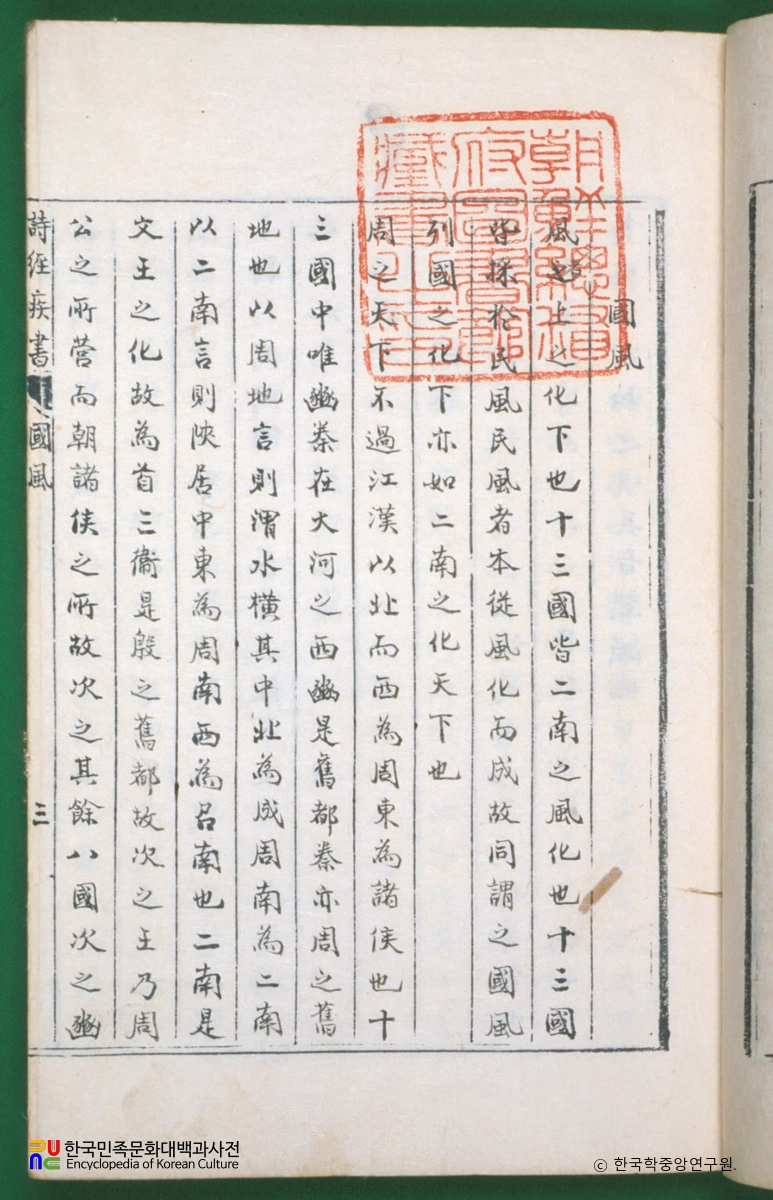 國風
風者上之化下也十三國皆二南之風化也十三國
皆採於民風民風者本從風化而成故同謂之國風
列國之化下亦如二南之化天下也
周之天下不過江漢以北而西為周東為諸侯也十
三國中唯豳秦在大河之西豳是舊都秦亦周之舊
地也以周地言則渭水橫其中北為成周南為二南
以二南言則陝居中東為周南西為召南也二南是
文王之化故為首三衞是殷之舊都故次之王乃周
公之所營而朝諸侯之所故次之其餘八國次之豳
詩經疾書 國風 三
朝鮮總督
府圖書館
藏書之印
한국민족문화대백과사전
Encyclopedia of Korean Culture
© 한국학중앙연구원.